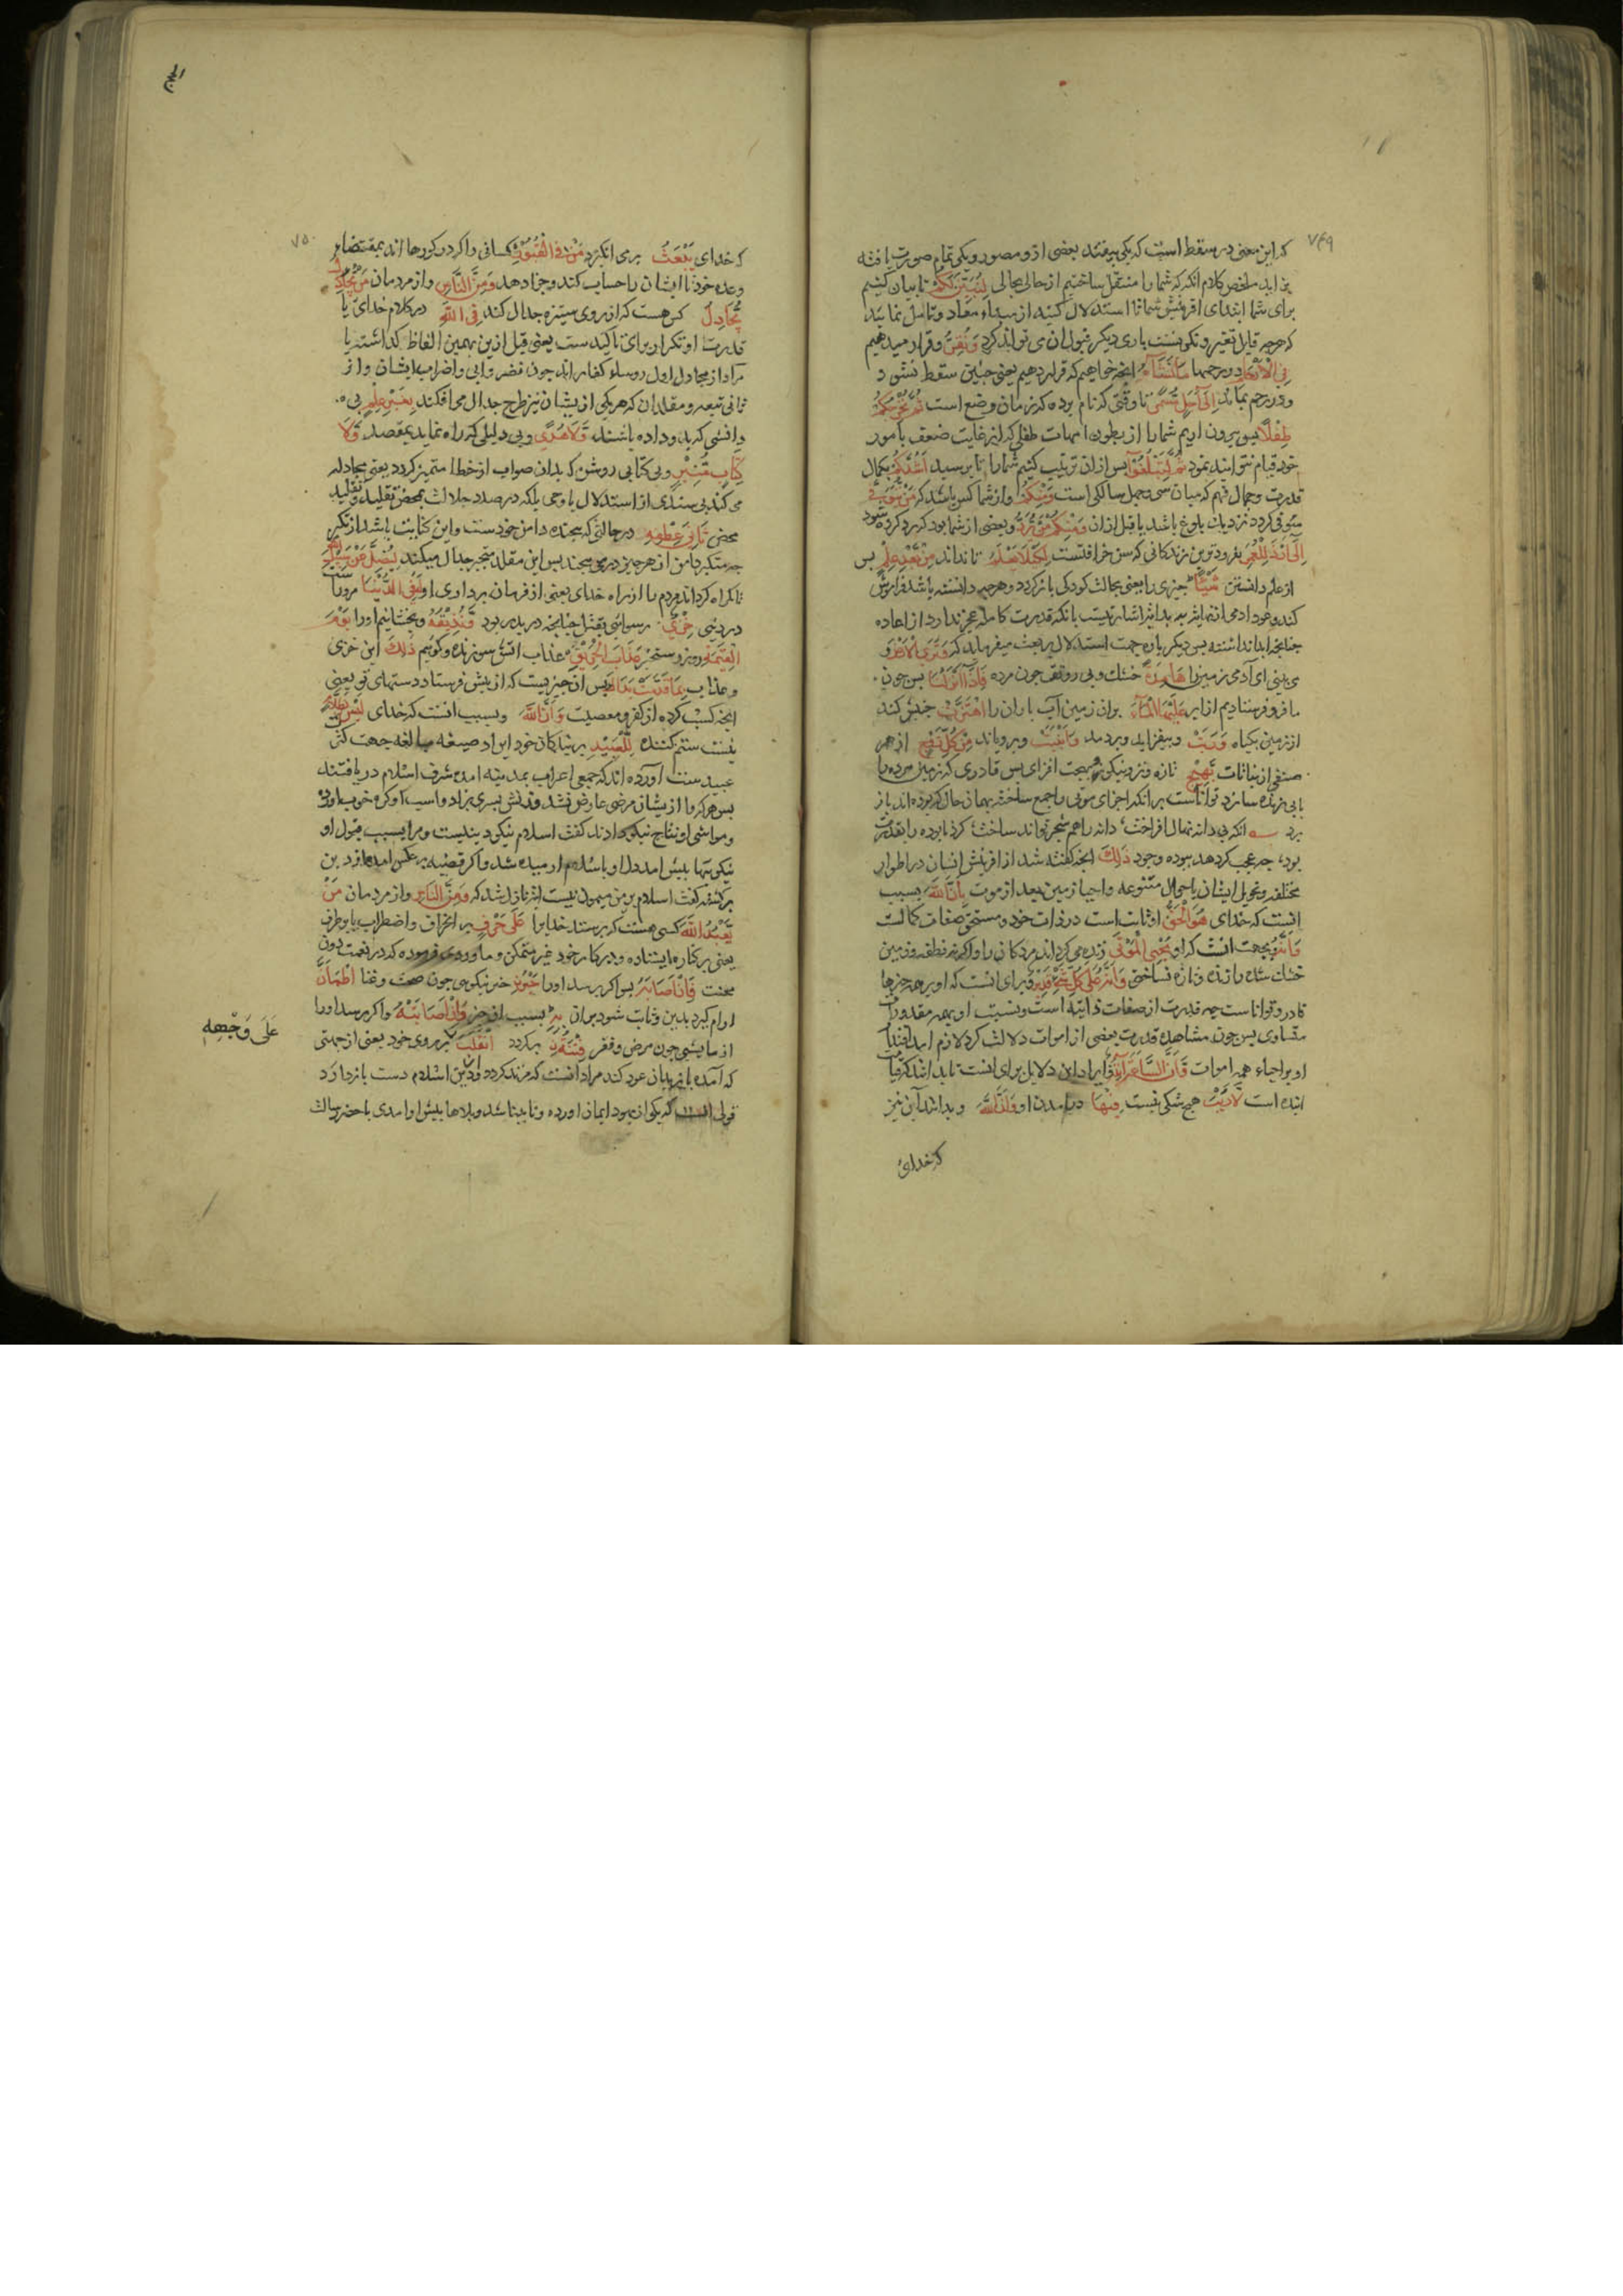 ۷۴۹
که این معنی در سقط است که یکی بیفتد بعضی ازو مصور و یکی تمام صورت یافته
برای شما ابتدای افرینش شما تا استدلال کنید از مبداء بمعاد و تامل نمائید
که هرچه قابل تغیر و تکون بست باری دیگر قبول ان می تواند کرد وَنُقِرُّ و قرار میدهیم
فِی الْاَرْحَامِ در رحمها مَا نَشَآءُ انچه خواهیم که قرار دهیم یعنی جنین سقط نشود
و در رحم بماند اِلٰی اَجَلٍ مُّسَمًّی تا وقتی که نام برده که زمان وضع است ثُمَّ نُخْرِجُکُمْ
طِفْلًا پس بیرون اریم شما را از بطون امهات طفلی که از غایت ضعف بامور
خود قیام نتوانید نمود ثُمَّ لِتَبْلُغُوْآ پس ازان تربیت کنیم شما را تا برسید اَشُدَّکُمْ بکمال
قدرت و کمال فهم که میان سی و چهل سالکی است وَمِنْکُمْ و از شما کس باشد که مَنْ یُّتَوَفّٰی
متوفی کردد نزدیک بلوغ باشد یا قبل ازان وَمِنْکُمْ مَّنْ یُّرَدُّ و بعضی از شما بود که رد کرده شود
اِلٰی اَرْذَلِ الْعُمُرِ بفروترین زندکانی که سن خرافتست لِکَیْلَا یَعْلَمَ تا نداند مِنْ بَعْدِ عِلْمٍ پس
از علم دانستن شَیْئًا چیزی را یعنی بحالت کودکی باز کردد و هرچه دانسته باشد فراموش
می بینی ای آدمی زمین را هَامِدَةً خشک و بی رونق چون مرده فَاِذَآ اَنْزَلْنَا پس چون
ما فرو فرستادیم از ابر عَلَیْهَا الْمَآءَ بران زمین آب باران را اهْتَزَّتْ جنبش کند
از زمین بکیاه وَرَبَتْ و بیفزاید و بردمد وَاَنْبَتَتْ و برویاند مِنْ کُلِّ زَوْجٍ از هر
صنفی از نباتات بَهِیْجٍ تازه و تر و نیکو و بهجت افزای پس قادری که زمین مرده را
بابی زنده سازد تواناست برانکه اجزای موتی را جمع ساخته بهمان حال که بوده اند باز
برد انکه بی دانه نهال افراخت دانه را هم شجر تواند ساخت کرد نابوده را بقدرت
بود، چه عجب کر دهد ببوده وجود ذٰلِکَ انچه کفته شد از افرینش انسان در اطوار
مختلفه و تحویل ایشان باحوال متنوعه و احیا زمین بعد از موت بِاَنَّ اللّٰهَ بسبب
انست که خدای هُوَ الْحَقُّ او ثابت است در ذات خود و مستحق صفات کمالست
وَاَنَّهٗ و بجهت انست که او یُحْیِی الْمَوْتٰی زنده می کرداند مردکان را و اکر نه نطفه و زمین
خشک شده را زنده و تازه نساختی وَاَنَّهٗ عَلٰی کُلِّ شَیْءٍ قَدِیْرٌ و برای انست که او بر همه چیزها
قادر و تواناست چه قدرت از صفات ذاتیه است و نسبت او بهمه مقدورات
متساوی پس چون مشاهده قدرت بعضی از اموات دلالت کرد لازم امد اقتدار
او بر احیاء همه اموات وَّاَنَّ السَّاعَةَ اٰتِیَةٌ و ایراد این دلایل برای انست تا بدانند که قیامت
اینده است لَّا رَیْبَ هیچ شکی نیست فِیْهَا در امدن او وَاَنَّ اللّٰهَ و بدانند آن نیز
که خدای
الحج
۷۵۰
که خدای یَبْعَثُ بر می انکیزد مَنْ فِی الْقُبُوْرِ کسانی را که در کورها اند بمقتضای
وعده خود تا ایشان را حساب کند و جزا دهد وَمِنَ النَّاسِ و از مردمان مَنْ یُّجَادِلُ
یُجَادِلُ کس هست که از روی ستیزه جدال کند فِی اللّٰهِ در کلام خدای یا
قدرت او تکرار برای تاکیدست یعنی قبل ازین بهمین الفاظ کذاشته یا
مراد از مجادل اول روساء کفار اند چون نضر و ابی و اضراب ایشان و از
ثانی تبعه و مقلدان که هریکی ازیشان نیز طرح جدال می افکند بِغَیْرِ عِلْمٍ بی
دانشی که بدو داده باشند وَّلَا هُدًی و بی دلیلی که راه نماید بمقصد وَّلَا
کِتَابٍ مُّنِیْرٍ و بی کتابی روشن که بدان صواب از خطا متمیز کردد یعنی مجادله
می کند بی سندی از استدلال یا وحی بلکه در صدد جدالست بمحض تقلید و تقلید
محض ثَانِیَ عِطْفِهٖ در حالتی که پیچنده دامن خودست و این کنایت باشد از تکبر
چه متکبر دامن از هر چیز در می پیچد پس این مقلد متجبر جدال میکند لِیُضِلَّ عَنْ سَبِیْلِ اللّٰهِ
تا کمراه کرداند مردم را از راه خدای یعنی از فرمان برداری او لَهٗ فِی الدُّنْیَا مروراست
در دنیی خِزْیٌ رسوایی بقتل چنانچه در بدر بود وَّنُذِیْقُهٗ و بچشانیم اورا یَوْمَ
الْقِیٰمَةِ روز رستخیز عَذَابَ الْحَرِیْقِ عذاب آتش سوزنده و کوئیم ذٰلِکَ این خزی
و عذاب بِمَا قَدَّمَتْ یَدٰکَ پس از چیزیست که از پیش فرستاد دستهای تو یعنی
انچه کسب کرده از کفر و معصیت وَاَنَّ اللّٰهَ و بسبب انست که خدای لَیْسَ بِظَلَّامٍ
نیست ستم کننده لِّلْعَبِیْدِ بر بندکان خود ایراد صیغه مبالغه جهت کثرت
عبیدست آورده اند که جمعی اعراب بمدینه امده شرف اسلام دریافتند
پس هرکه را ازیشان مرضی عارض نشد و زنش پسری بزاد و اسب او کره خوب اورد
و مواشی او نتاج نیکو دادند کفت اسلام نیکو دینیست و مرا بسبب قبول او
نیکوییها پیش امد دل او باسلام ارمیده شد و اکر قضیه برعکس امدی از دین
برکشته کفت اسلام بر من میمون نیست ایت نازل شد که وَمِنَ النَّاسِ و از مردمان مَنْ
یَّعْبُدُ اللّٰهَ کسی هست که پرستد خدایرا عَلٰی حَرْفٍ بر انحراف و اضطراب یا بر طرف
یعنی بر کناره ایستاده و در کار خود غیر متمکن و ماوردی فرموده که در نعمت دون
محنت فَاِنْ اَصَابَهٗ پس اکر برسد اورا خَیْرٌ خیر نیکویی چون صحت و غنا اطْمَاَنَّ
ارام کیرد بدین و ثابت شود بران بِهٖ بسبب ان خیر وَاِنْ اَصَابَتْهُ و اکر برسد اورا
ازمایشی چون مرض و فقر فِتْنَةٌ برکردد انْقَلَبَ بر روی خود یعنی از جهتی
عَلٰی وَجْهِهٖ
که آمده باز بدان عود کند مراد انست که مرتد کردد و از دین اسلام دست بازدارد
قولی انست که یکی از یهود ایمان اورده و نابینا شد و بلاها پیش او امدی با حضرت رسالت